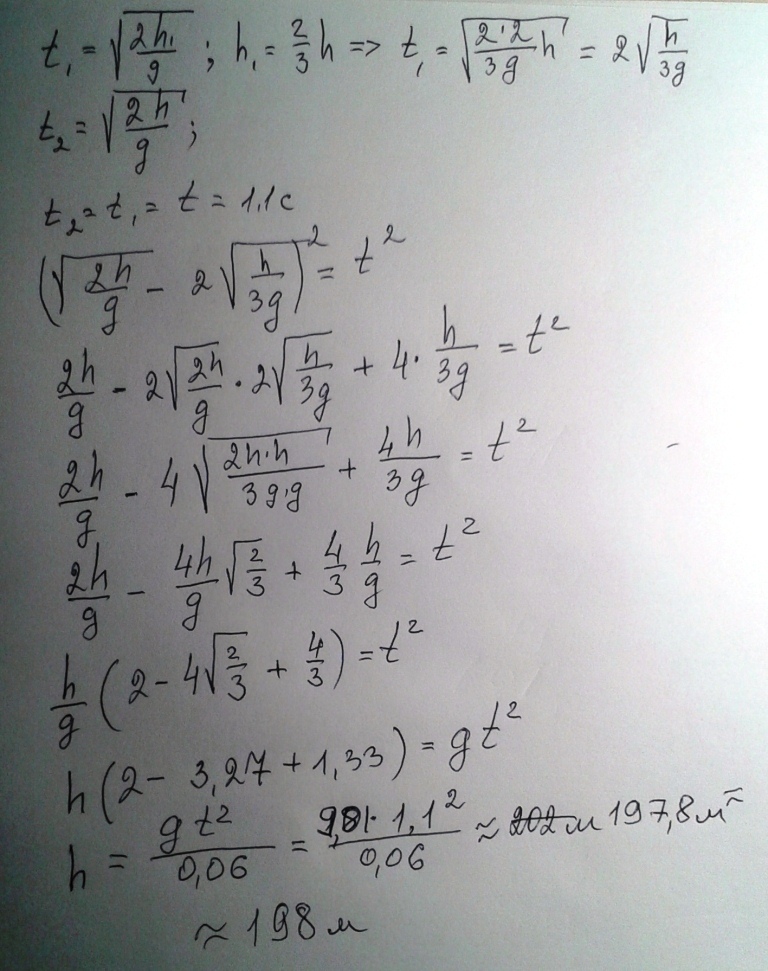 t₁ = √(2h₁/g) ; h₁ = 2/3 h => t₁ = √(2·2/3g h) = 2√(h/3g)
t₂ = √(2h/g) ;
t₂ = t₁ = t = 1,1 с
(√(2h/g) - 2√(h/3g))² = t²
2h/g - 2√(2h/g) · 2√(h/3g) + 4 · h/3g = t²
2h/g - 4√(2h·h/3g·g) + 4h/3g = t²
2h/g - 4h/g √(2/3) + 4/3 h/g = t²
h/g (2 - 4√(2/3) + 4/3) = t²
h (2 - 3,27 + 1,33) = g t²
h = g t²/0,06 = 9,81 · 1,1²/0,06 ≈ 202 м 197,8 м ≈
≈ 198 м